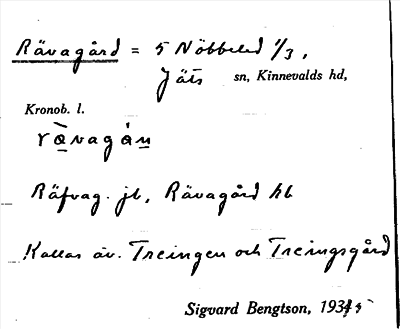 Rävagård = 5 Nöbbeled 1/3,
Jäts sn, Kinnevalds hd,
Kronob. l.
ràvagán
Räfvag. jb, Rävagård hb
Kallas äv. Treingen och Treingsgård
Sigvard Bengtson, 1935